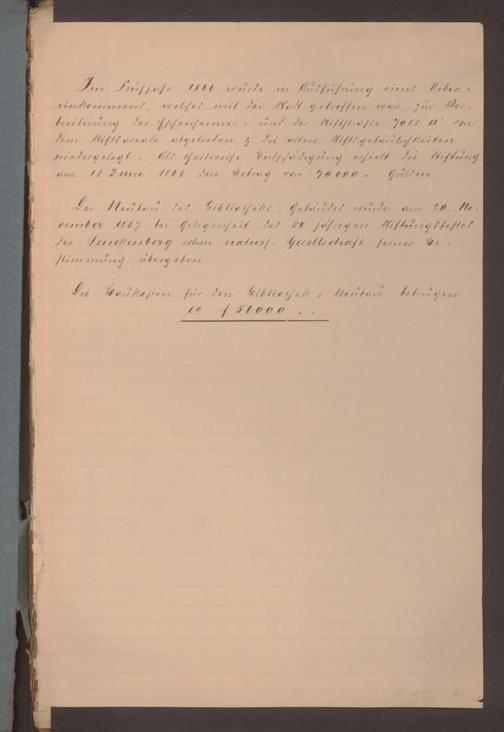 Im Frühjahr 1866 wurde in Ausführung eines Ueber-
einkommens, welches mit der Stadt getroffen war, zur Ver-
breiterung der Eschenheimer- und der Stiftstraße von
dem Stiftsareale abgetreten & die alten Stiftsgebäulichkeiten
niedergelegt. Als theilweise Entschädigung erhielt die Stiftung
am 11 Juni 1866 den Betrag von 70000.- Gulden.
Der Neubau des Bibliotheks-Gebäudes wurde am 20. No-
vember 1867 bei Gelegenheit des 50 jährigen Stiftungsfestes
der Senckenberg'schen naturf. Gesellschaft seiner Be-
stimmung übergeben
Die Baukosten für den Bibliothek-Neubau betrugen
ca f 56000.-